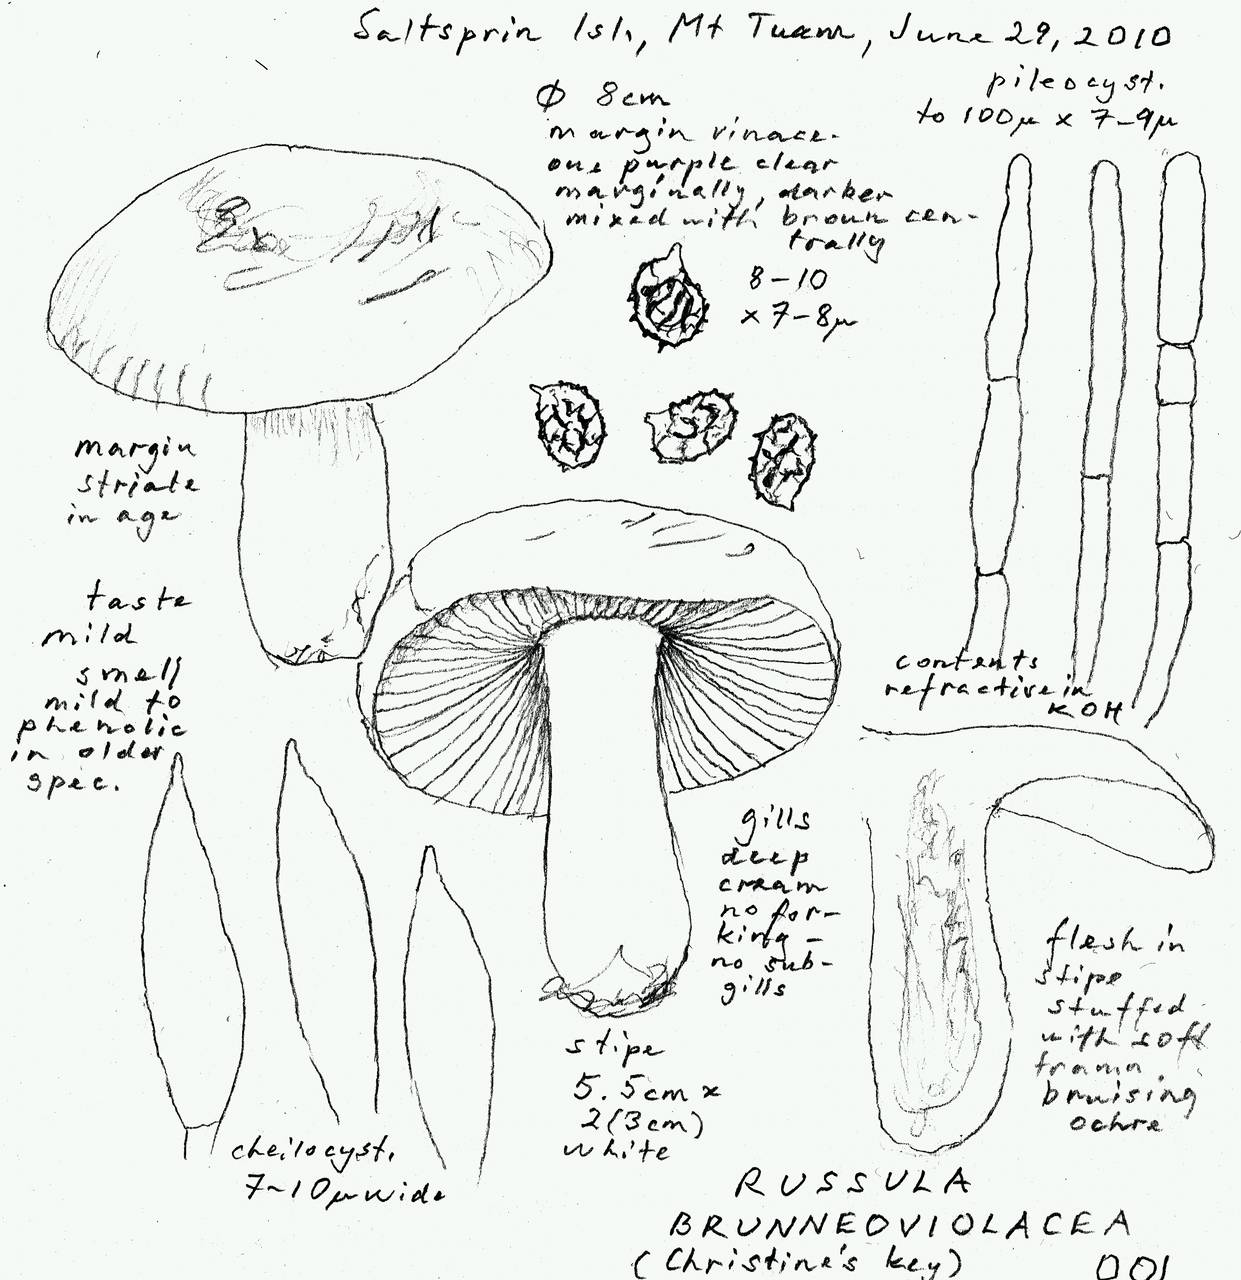 Saltsprin Isl, Mt Tuam, June 29, 2010
pileocyst.
to 100µ x 7-9µ
Ø 8cm
margin vinace-
ous purple clear
marginally, darker
mixed with brown cen-
trally
8-10
x 7-8µ
margin
striate
in age
taste
mild
smell
mild to
phenolic
in older
spec.
contents
refractive in
KOH
gills
deep
cream
no for-
king -
no sub-
gills
flesh in
stipe
stuffed
with soft
trama
bruising
ochre
stipe
5.5cm x
2(3cm)
white
cheilocyst.
7-10µ wide
RUSSULA
BRUNNEOVIOLACEA
(Christine's key) 001